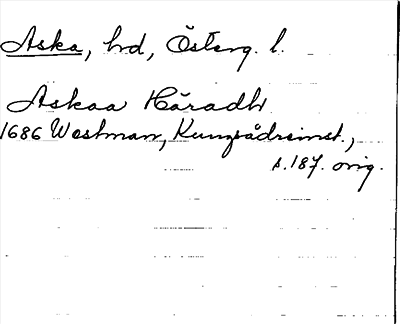 Aska, hd, Österg. l.
Askaa Häradh
1686 Westman, Kungsådreinst.,
s. 187. orig.